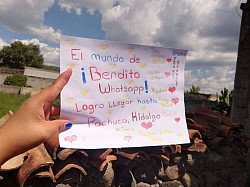 El mundo de
¡Bendito
Whatsapp!
Logro LLegar hasta
Pachuca, Hidalgo